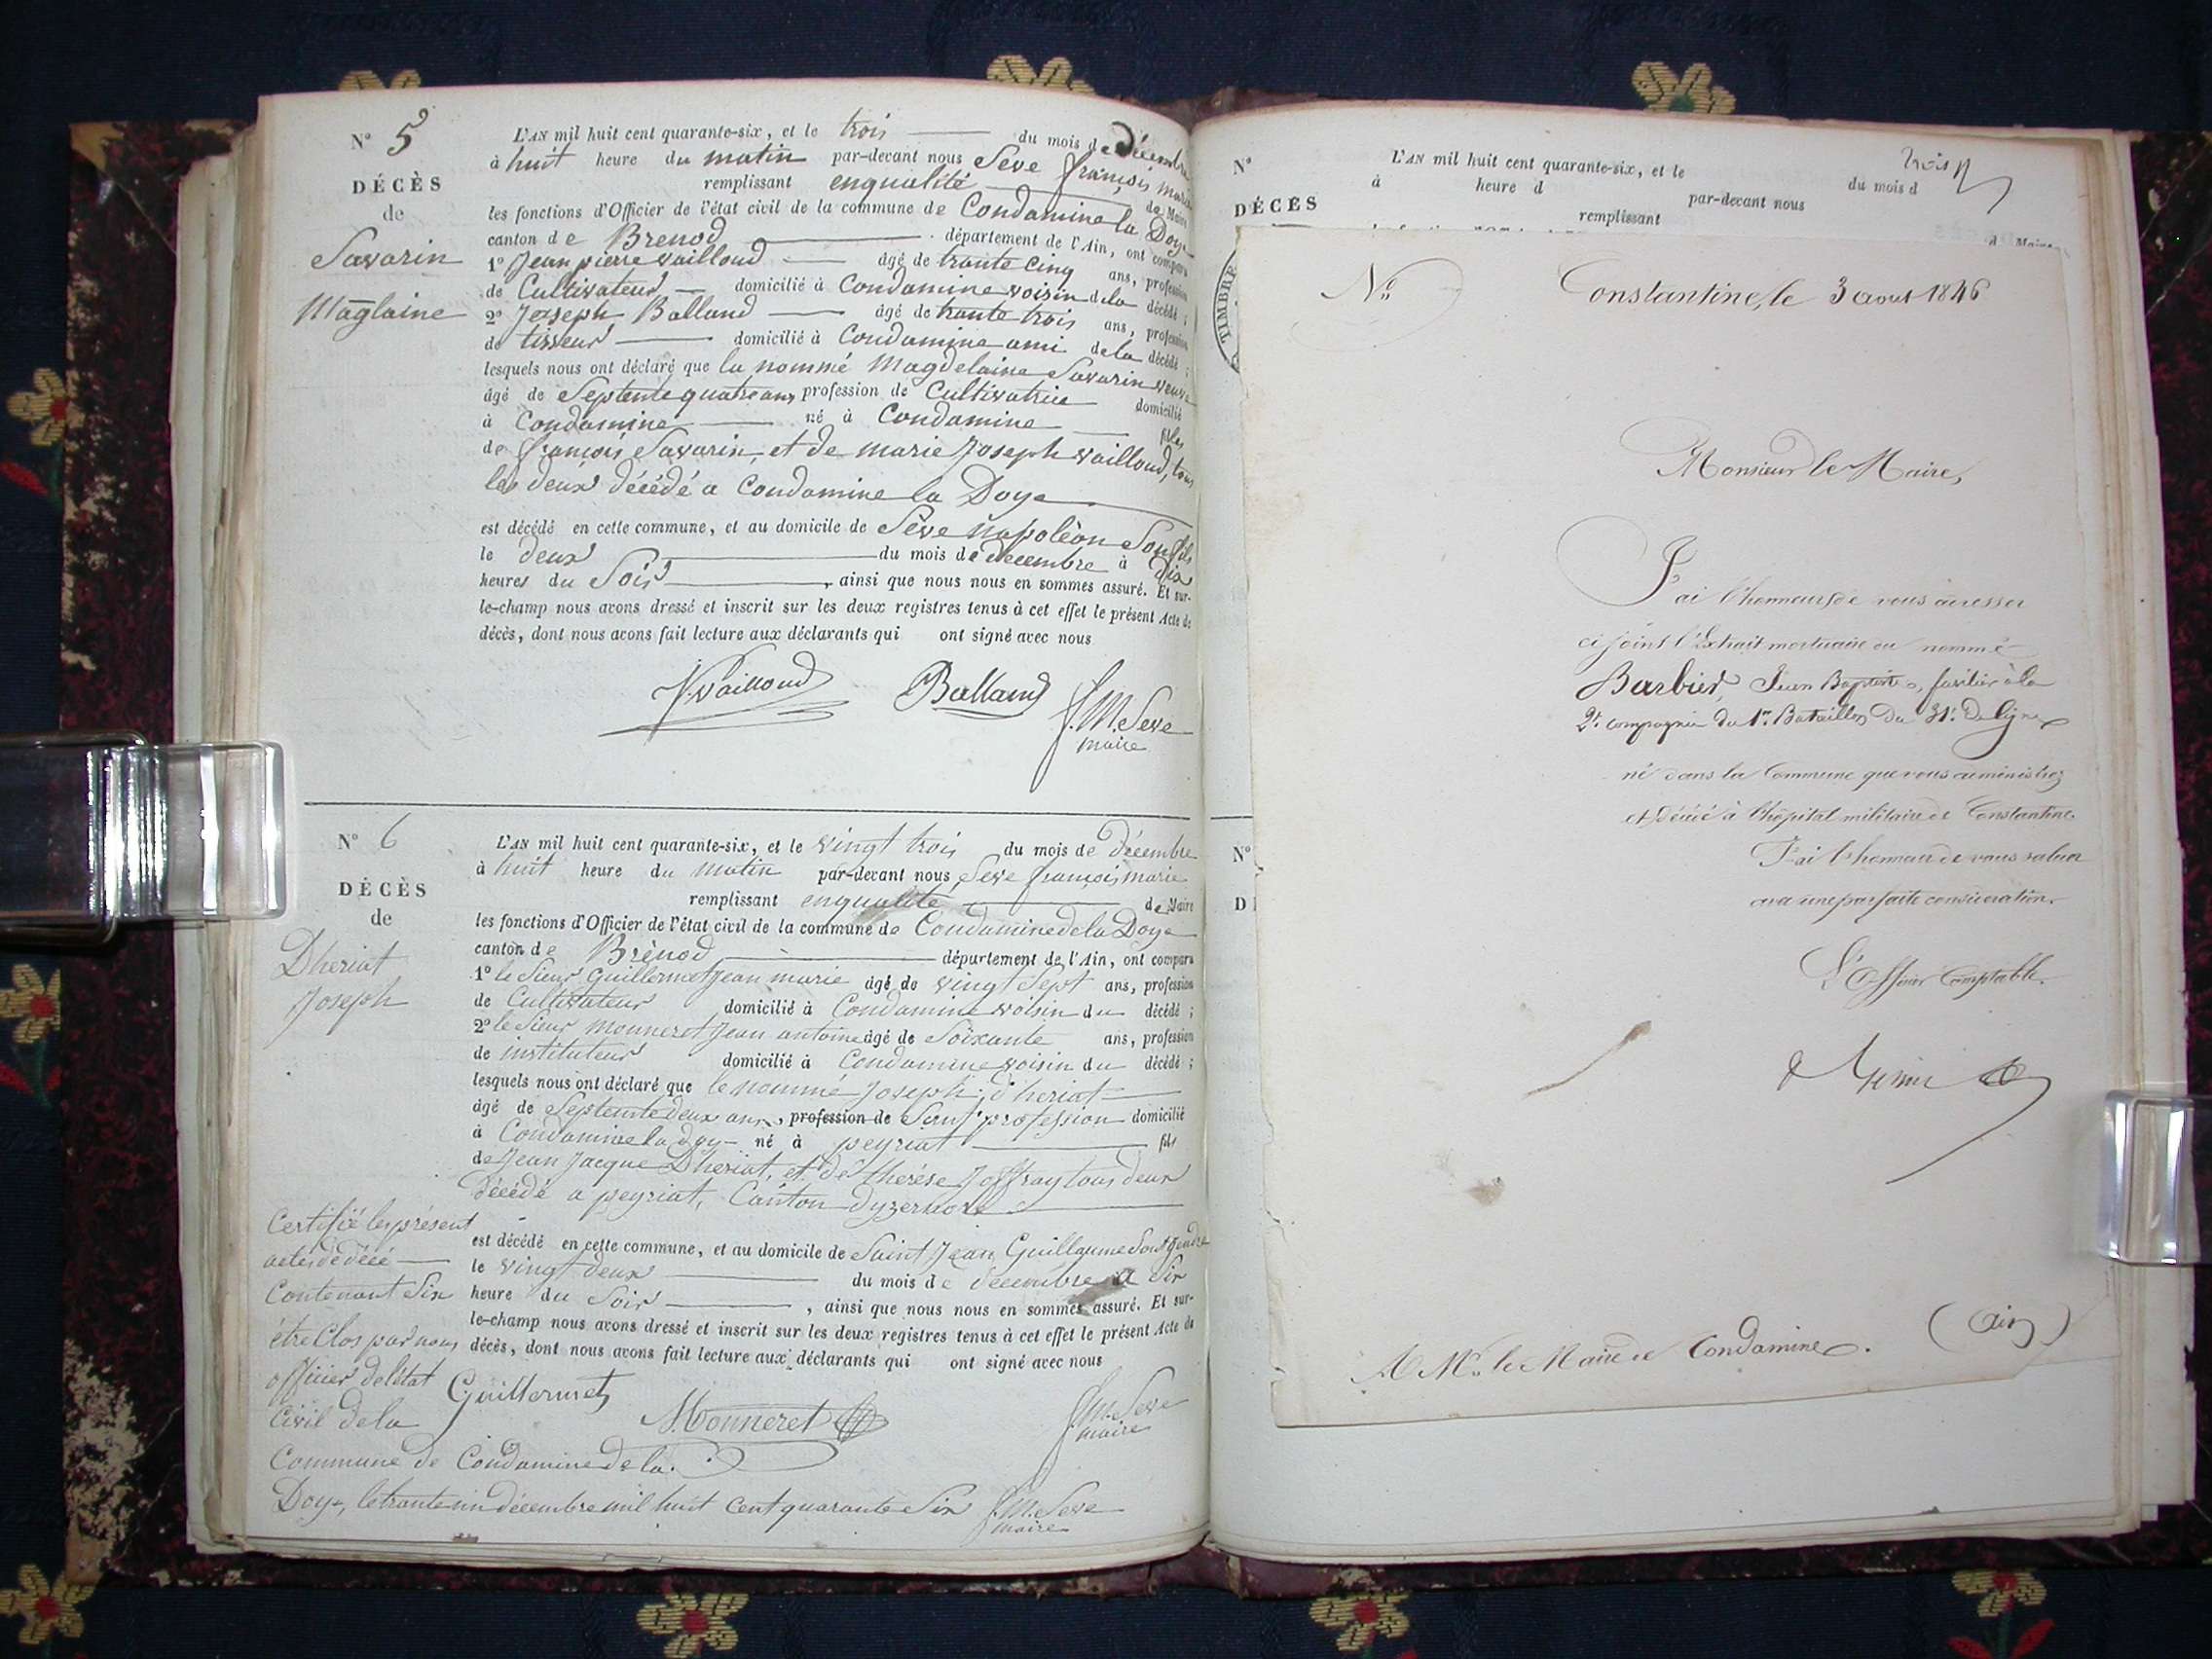 N° 5
DÉCÈS
de
Savarin
Maglaine
L'AN mil huit cent quarante-six, et le trois du mois de Décembre
à huit heure du matin par-devant nous Seve françois marie
remplissant enqualité de Maire
les fonctions d'Officier de l'état civil de la commune de Condamine la Doye
canton de Brenod département de l'Ain, ont comparu
1° Jean pierre vailloud âgé de trante cinq ans, profession
de Cultivateur domicilié à Condamine voisin de la décédé ;
2° Joseph Balland âgé de trante trois ans, profession
de tisseur domicilié à Condamine ami dela décédé ;
lesquels nous ont déclaré que la nommé Magdelaine Savarin veuve
âgé de Septente quatre ans, profession de Cultivatrice domicilié
à Condamine né à Condamine
de françois Savarin, et de marie Joseph vailloud, tous
les deux décédé a Condamine la Doye
est décédé en cette commune, et au domicile de Sève napoléon Son fils
le deux du mois de decembre à dix
heures du Soir, ainsi que nous nous en sommes assuré. Et sur-
le-champ nous avons dressé et inscrit sur les deux registres tenus à cet effet le présent Acte de
décès, dont nous avons fait lecture aux déclarants qui ont signé avec nous
J. Vailloud Balland f. M. Seve
maire
N° 6
DÉCÈS
de
Dheriat
Joseph
L'AN mil huit cent quarante-six, et le vingt trois du mois de décembre
à huit heure du matin par-devant nous Seve françois marie
remplissant enqualité de Maire
les fonctions d'Officier de l'état civil de la commune de Condamine de la Doye
canton de Brénod département de l'Ain, ont comparu
1° le Sieur Guillermet Jean marie âgé de vingt Sept ans, profession
de Cultivateur domicilié à Condamine voisin du décédé ;
2° le Sieur Monneret Jean antoine âgé de Soixante ans, profession
de instituteur domicilié à Condamine voisin du décédé ;
lesquels nous ont déclaré que le nommé Joseph d'heriat
âgé de Septente deux ans, profession de Sans profession domicilié
à Condamine la doy né à peyriat fils
de Jean Jacque Dheriat, et de therése Joffray tous deux
décédé a peyriat, Canton dyzernore
est décédé en cette commune, et au domicile de Saint Jean Guillaume Son gendre
le vingt deux du mois de decembre a Six
heure du Soir, ainsi que nous nous en sommes assuré. Et sur-
le-champ nous avons dressé et inscrit sur les deux registres tenus à cet effet le présent Acte de
décès, dont nous avons fait lecture aux déclarants qui ont signé avec nous
Guillermet Monneret f. M. Seve
maire
Certifié les présent
actes de décé
Contenant Six
être Clos par nous
officier de létat
Civil de la
Commune de Condamine de la
Doye, le trante un décembre mil huit Cent quarante Six f. M. Seve
maire
N°
DÉCÈS
L'AN mil huit cent quarante-six, et le
du mois d
à heure d par-devant nous
remplissant
TIMBRE
N°
Constantine, le 3 aout 1846
Monsieur le Maire,
J'ai l'honneur de vous adresser
ci joint l'Extrait mortuaire du nommé
Barbier, Jean Baptiste, fusilier à la
2e. compagnie du 1er. Bataillon du 31e. de ligne
né dans la Commune que vous administrez
et décédé à l'hôpital militaire de Constantine.
J'ai l'honneur de vous saluer
avec une parfaite considération.
L'Officier Comptable.
A Mr. le Maire de Condamine. (Ain)
N°